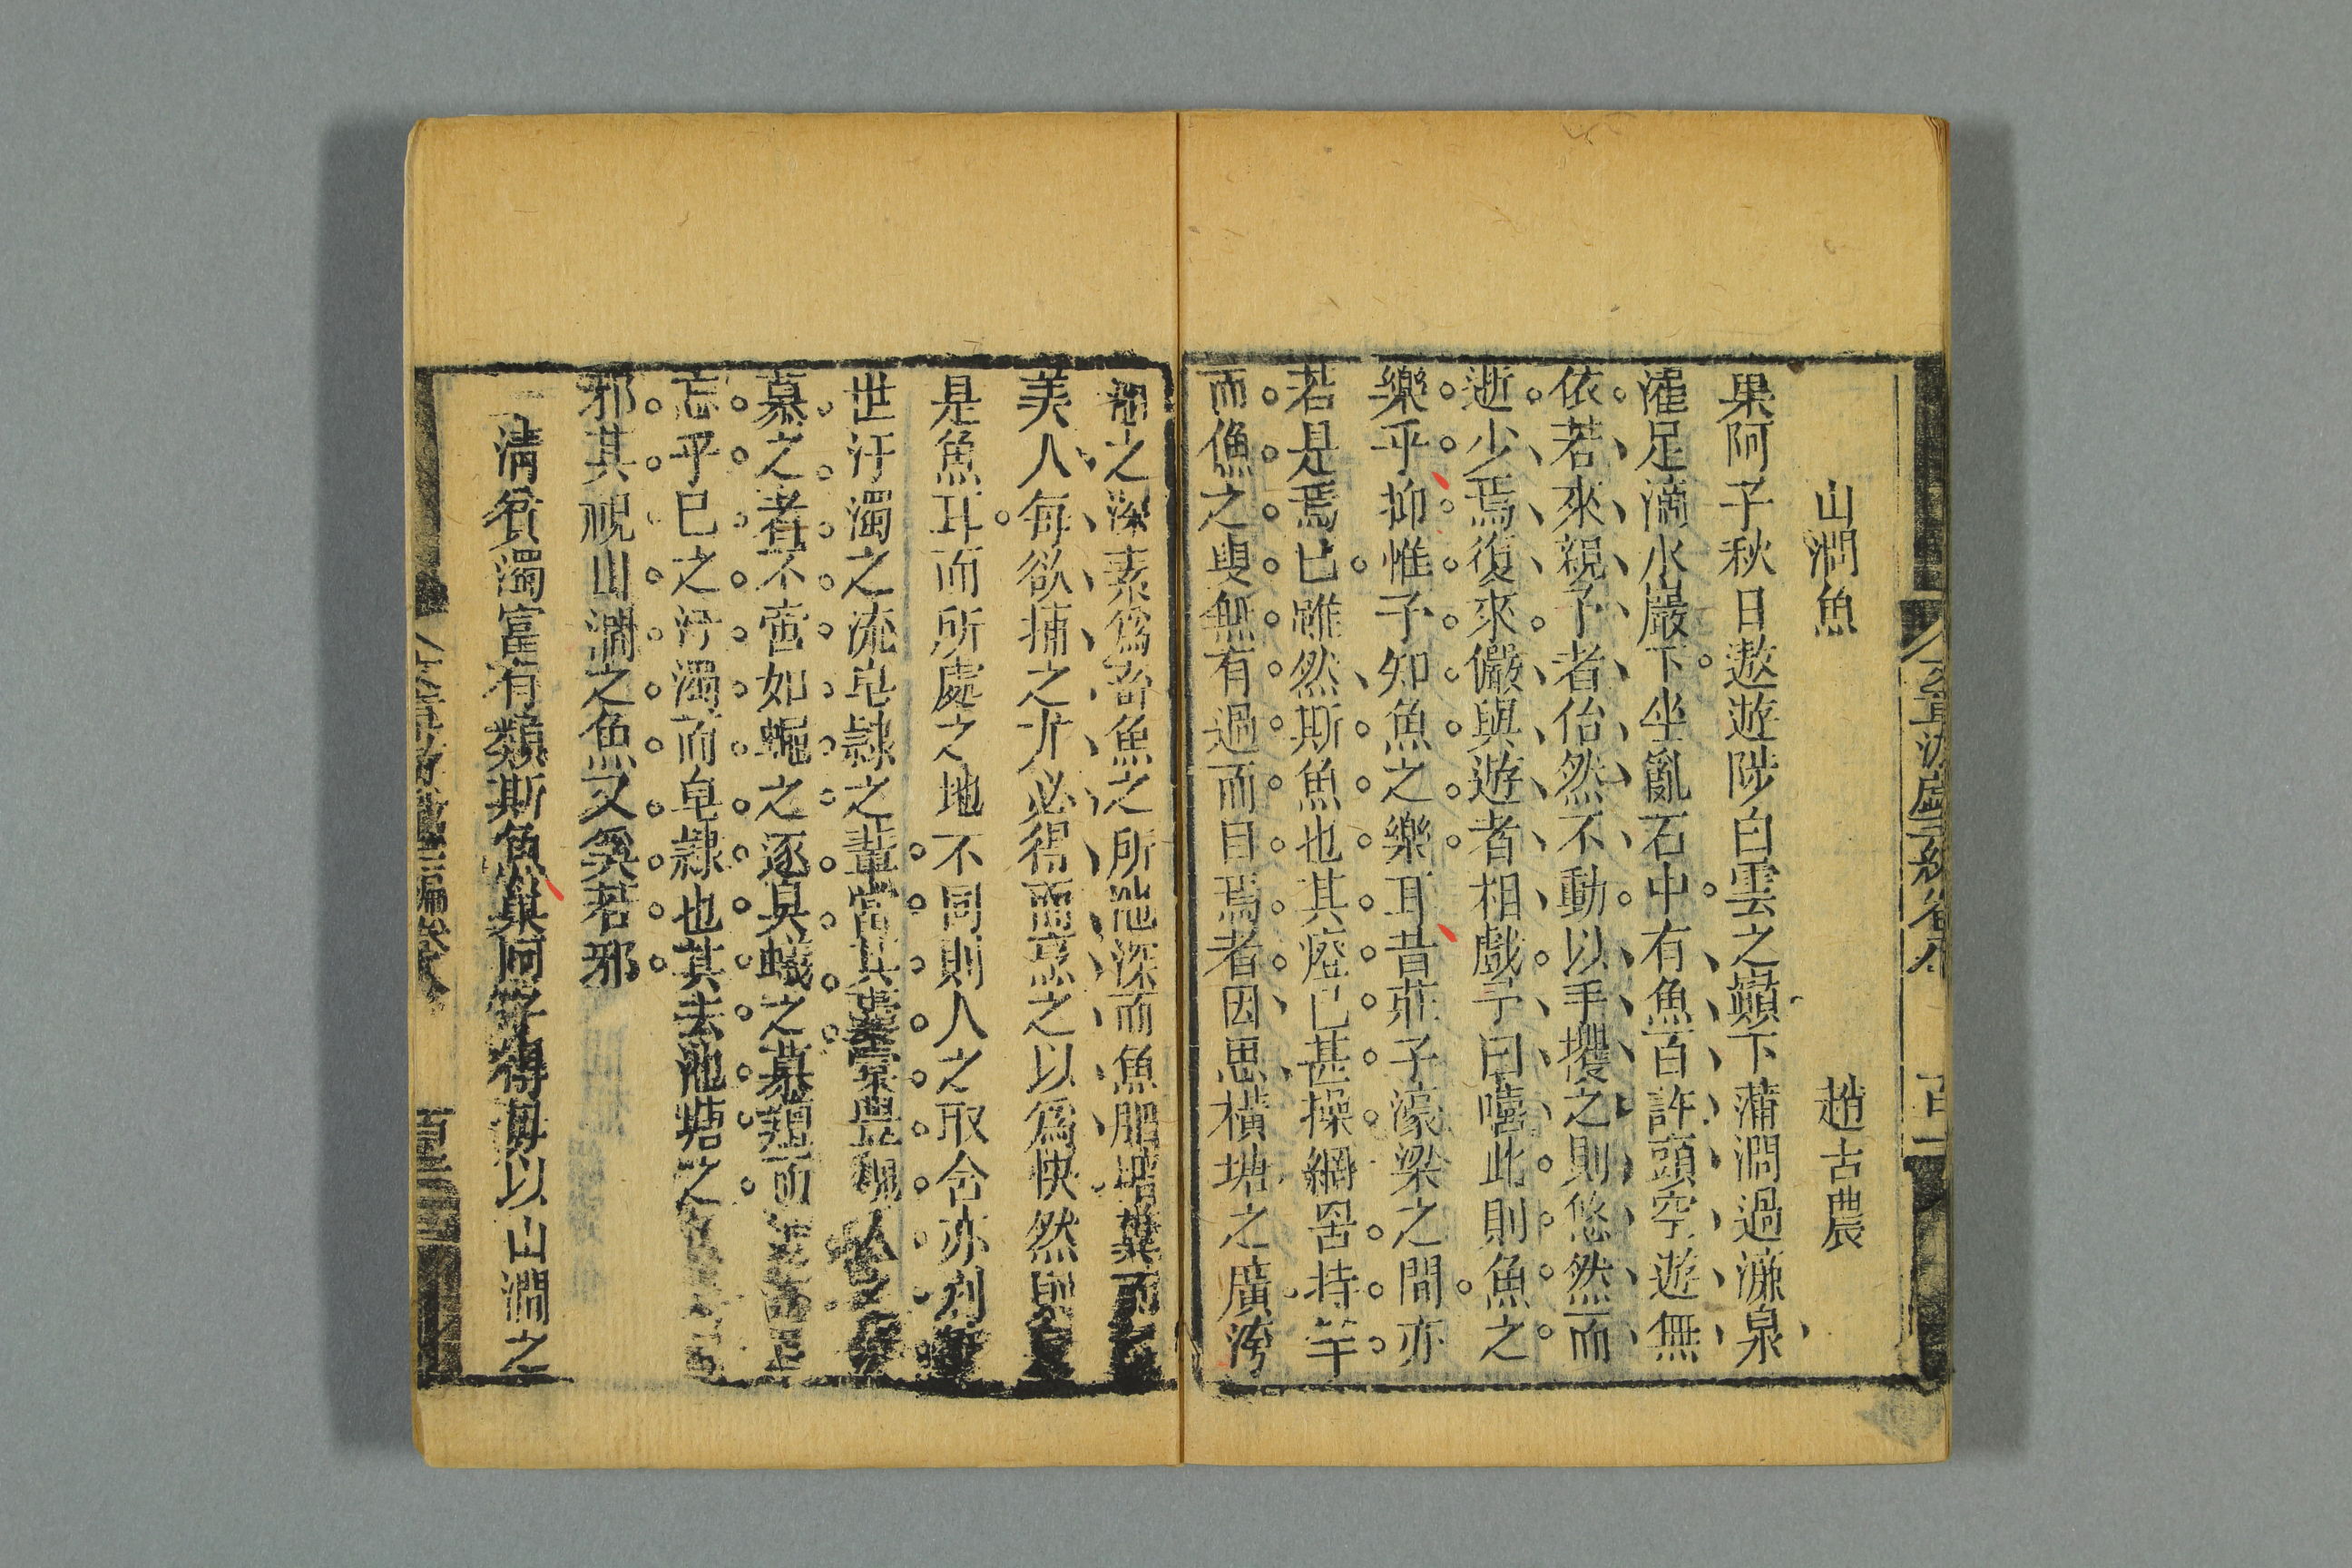 山澗魚 趙古農
果阿子秋日遨遊陟白雲之巔下蒲澗過濂泉
濯足滴水巖下坐亂石中有魚百許頭空遊無
依若來親予者佁然不動以手攖之則悠然而
逝少焉復來儼與遊者相戲予曰嘻此則魚之
樂乎抑惟子知魚之樂耳昔莊子濠梁之間亦
若是焉已雖然斯魚也其癈已甚操網罟持竿
而漁之叟無有過而目焉者因思橫塘之廣洿
池之深素爲畜魚之所池深而魚肥塘糞而
美人每欲捕之才必得而烹之以爲快然
是魚耳而所處之地不同則人之取舍亦
世汙濁之流皂隷之輩當其
慕之者不啻如蠅之逐臭蟻之慕羶而
忘乎已之汙濁而皂隷也其去池塘之
邪其視山澗之魚又奚若邪
清貧濁富有類斯魚果阿子得毋以山澗之
百一